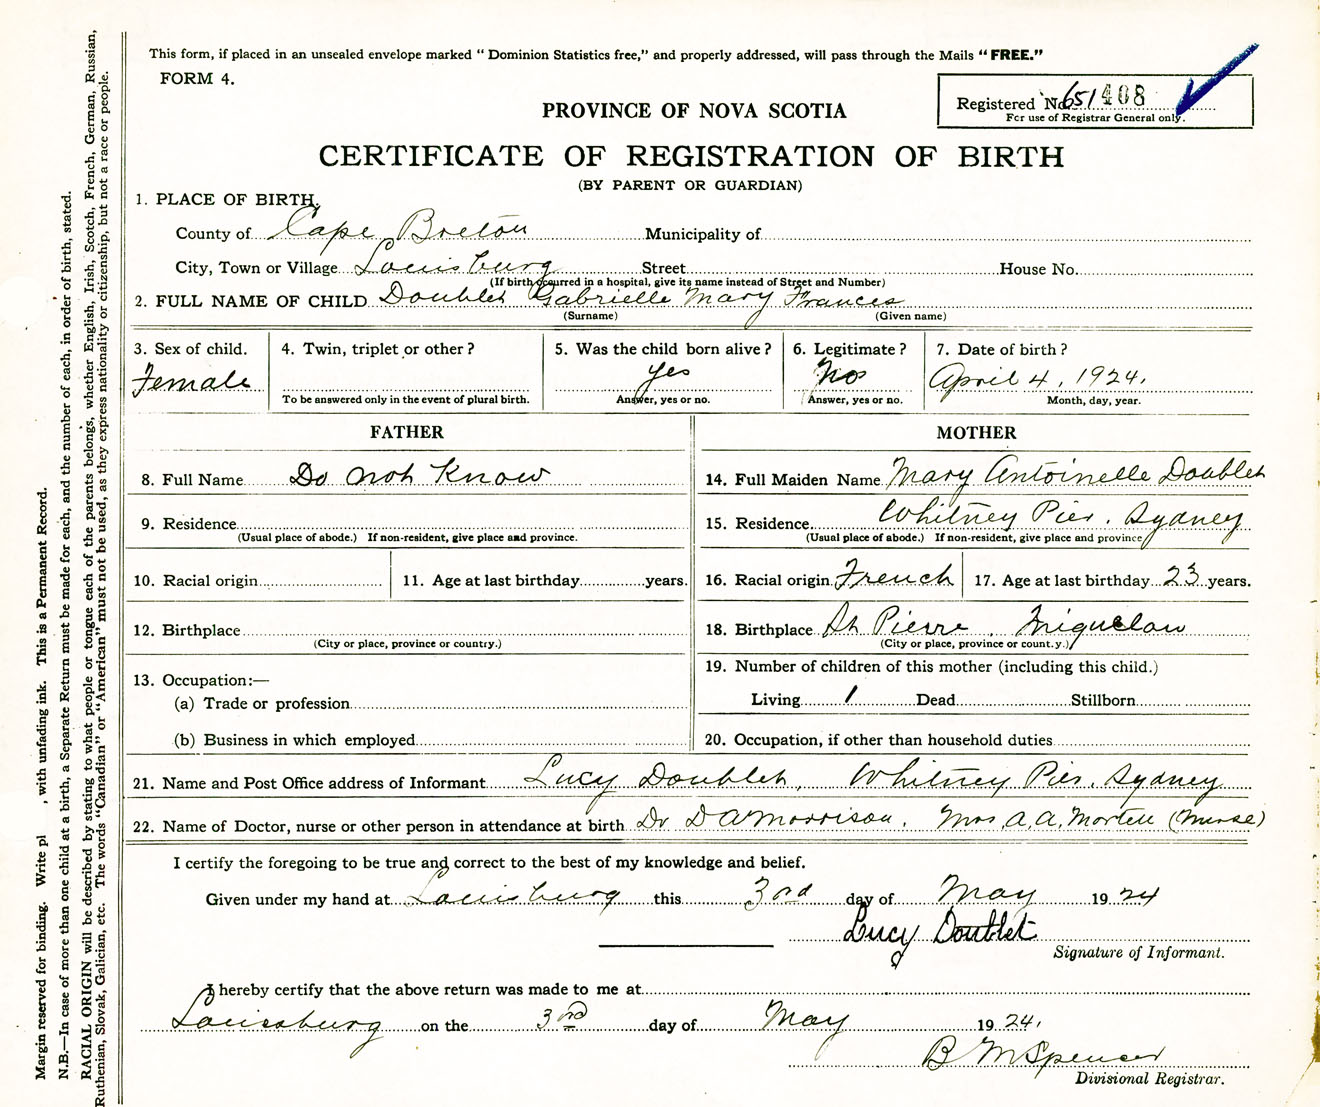 This form, if placed in an unsealed envelope marked " Dominion Statistics free," and properly addressed, will pass through the Mails "FREE."
FORM 4.
Registered No. 651408
For use of Registrar General only.
PROVINCE OF NOVA SCOTIA
CERTIFICATE OF REGISTRATION OF BIRTH
(BY PARENT OR GUARDIAN)
1. PLACE OF BIRTH.
County of Cape Breton Municipality of
City, Town or Village Louisburg Street House No.
(If birth occurred in a hospital, give its name instead of Street and Number)
2. FULL NAME OF CHILD Doublet Gabrielle Mary Frances
(Surname) (Given name)
3. Sex of child. 4. Twin, triplet or other? 5. Was the child born alive? 6. Legitimate? 7. Date of birth?
Female yes No April 4, 1924.
To be answered only in the event of plural birth. Answer, yes or no. Answer, yes or no. Month, day, year.
FATHER
8. Full Name Do not Know
9. Residence
(Usual place of abode.) If non-resident, give place and province.
10. Racial origin 11. Age at last birthday years.
12. Birthplace
(City or place, province or country.)
13. Occupation:—
(a) Trade or profession
(b) Business in which employed
MOTHER
14. Full Maiden Name Mary Antoinelle Doublet
15. Residence Whitney Pier. Sydney
(Usual place of abode.) If non-resident, give place and province
16. Racial origin French 17. Age at last birthday 23 years.
18. Birthplace St Pierre. Miquelon
(City or place, province or county.)
19. Number of children of this mother (including this child.)
Living 1 Dead Stillborn
20. Occupation, if other than household duties
21. Name and Post Office address of Informant Lucy Doublet, Whitney Pier. Sydney
22. Name of Doctor, nurse or other person in attendance at birth Dr D A Morrison. Mrs A. A. Martell (Nurse)
I certify the foregoing to be true and correct to the best of my knowledge and belief.
Given under my hand at Louisburg this 3rd day of May 19 24
Lucy Doublet
Signature of Informant.
I hereby certify that the above return was made to me at
Louisburg on the 3rd day of May 19 24.
B M Spencer
Divisional Registrar.
Margin reserved for binding. Write pl , with unfading ink. This is a Permanent Record.
N.B.—In case of more than one child at a birth, a Separate Return must be made for each, and the number of each, in order of birth, stated.
RACIAL ORIGIN will be described by stating to what people or tongue each of the parents belongs, whether English, Irish, Scotch, French, German, Russian,
Ruthenian, Slovak, Galician, etc. The words "Canadian" or "American" must not be used, as they express nationality or citizenship, but not a race or people.